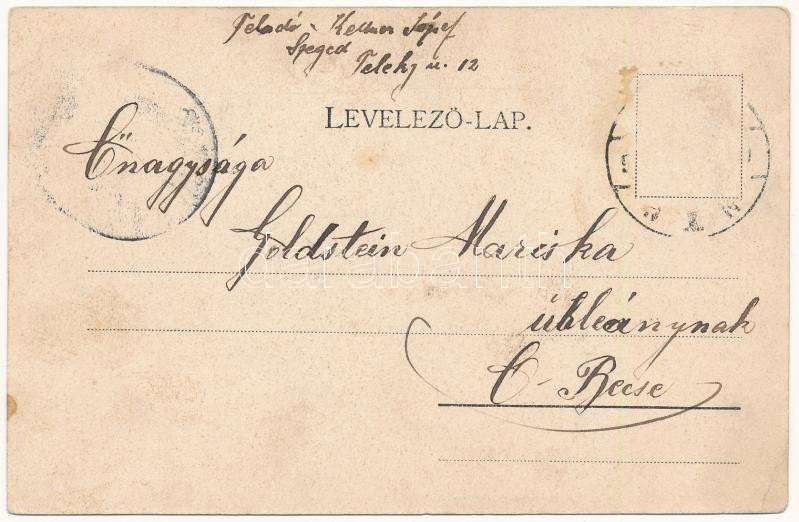 Feladó - Kellner József
Szeged
Teleky u. 12
LEVELEZŐ-LAP.
Őnagysága
Goldstein Mariska
úhleánynak
Ó-Becse
darabanth